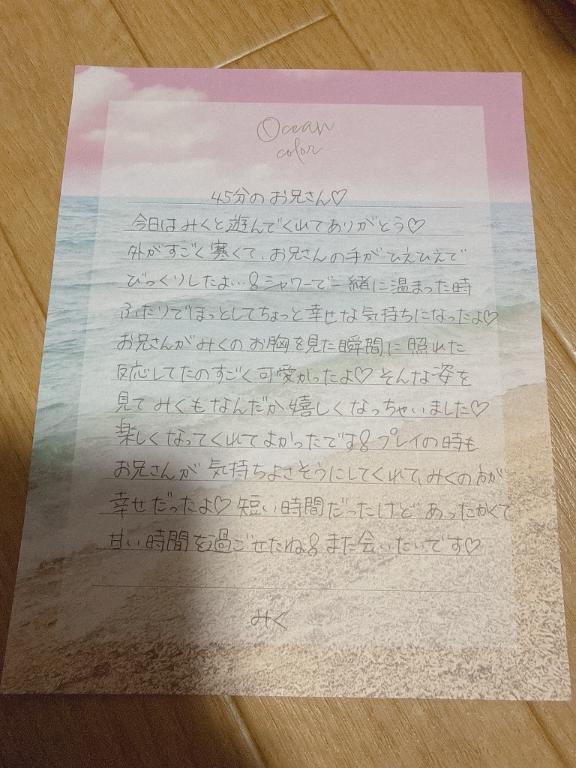 Ocean
color
45分のお兄さん♡
今日はみくと遊んでくれてありがとう♡
外がすごく寒くて、お兄さんの手がひえひえで
びっくりしたよ…！シャワーで一緒に温まった時
ふたりでほっとしてちょっと幸せな気持ちになったよ♡
お兄さんがみくのお胸を見た瞬間に照れた
反応してたのすごく可愛かったよ♡そんな姿を
見てみくもなんだか嬉しくなっちゃいました♡
楽しくなってくれてよかったです！プレイの時も
お兄さんが気持ちよさそうにしてくれて、みくの方が
幸せだったよ♡短い時間だったけどあったかくて
甘い時間を過ごせたね！また会いたいです♡
みく